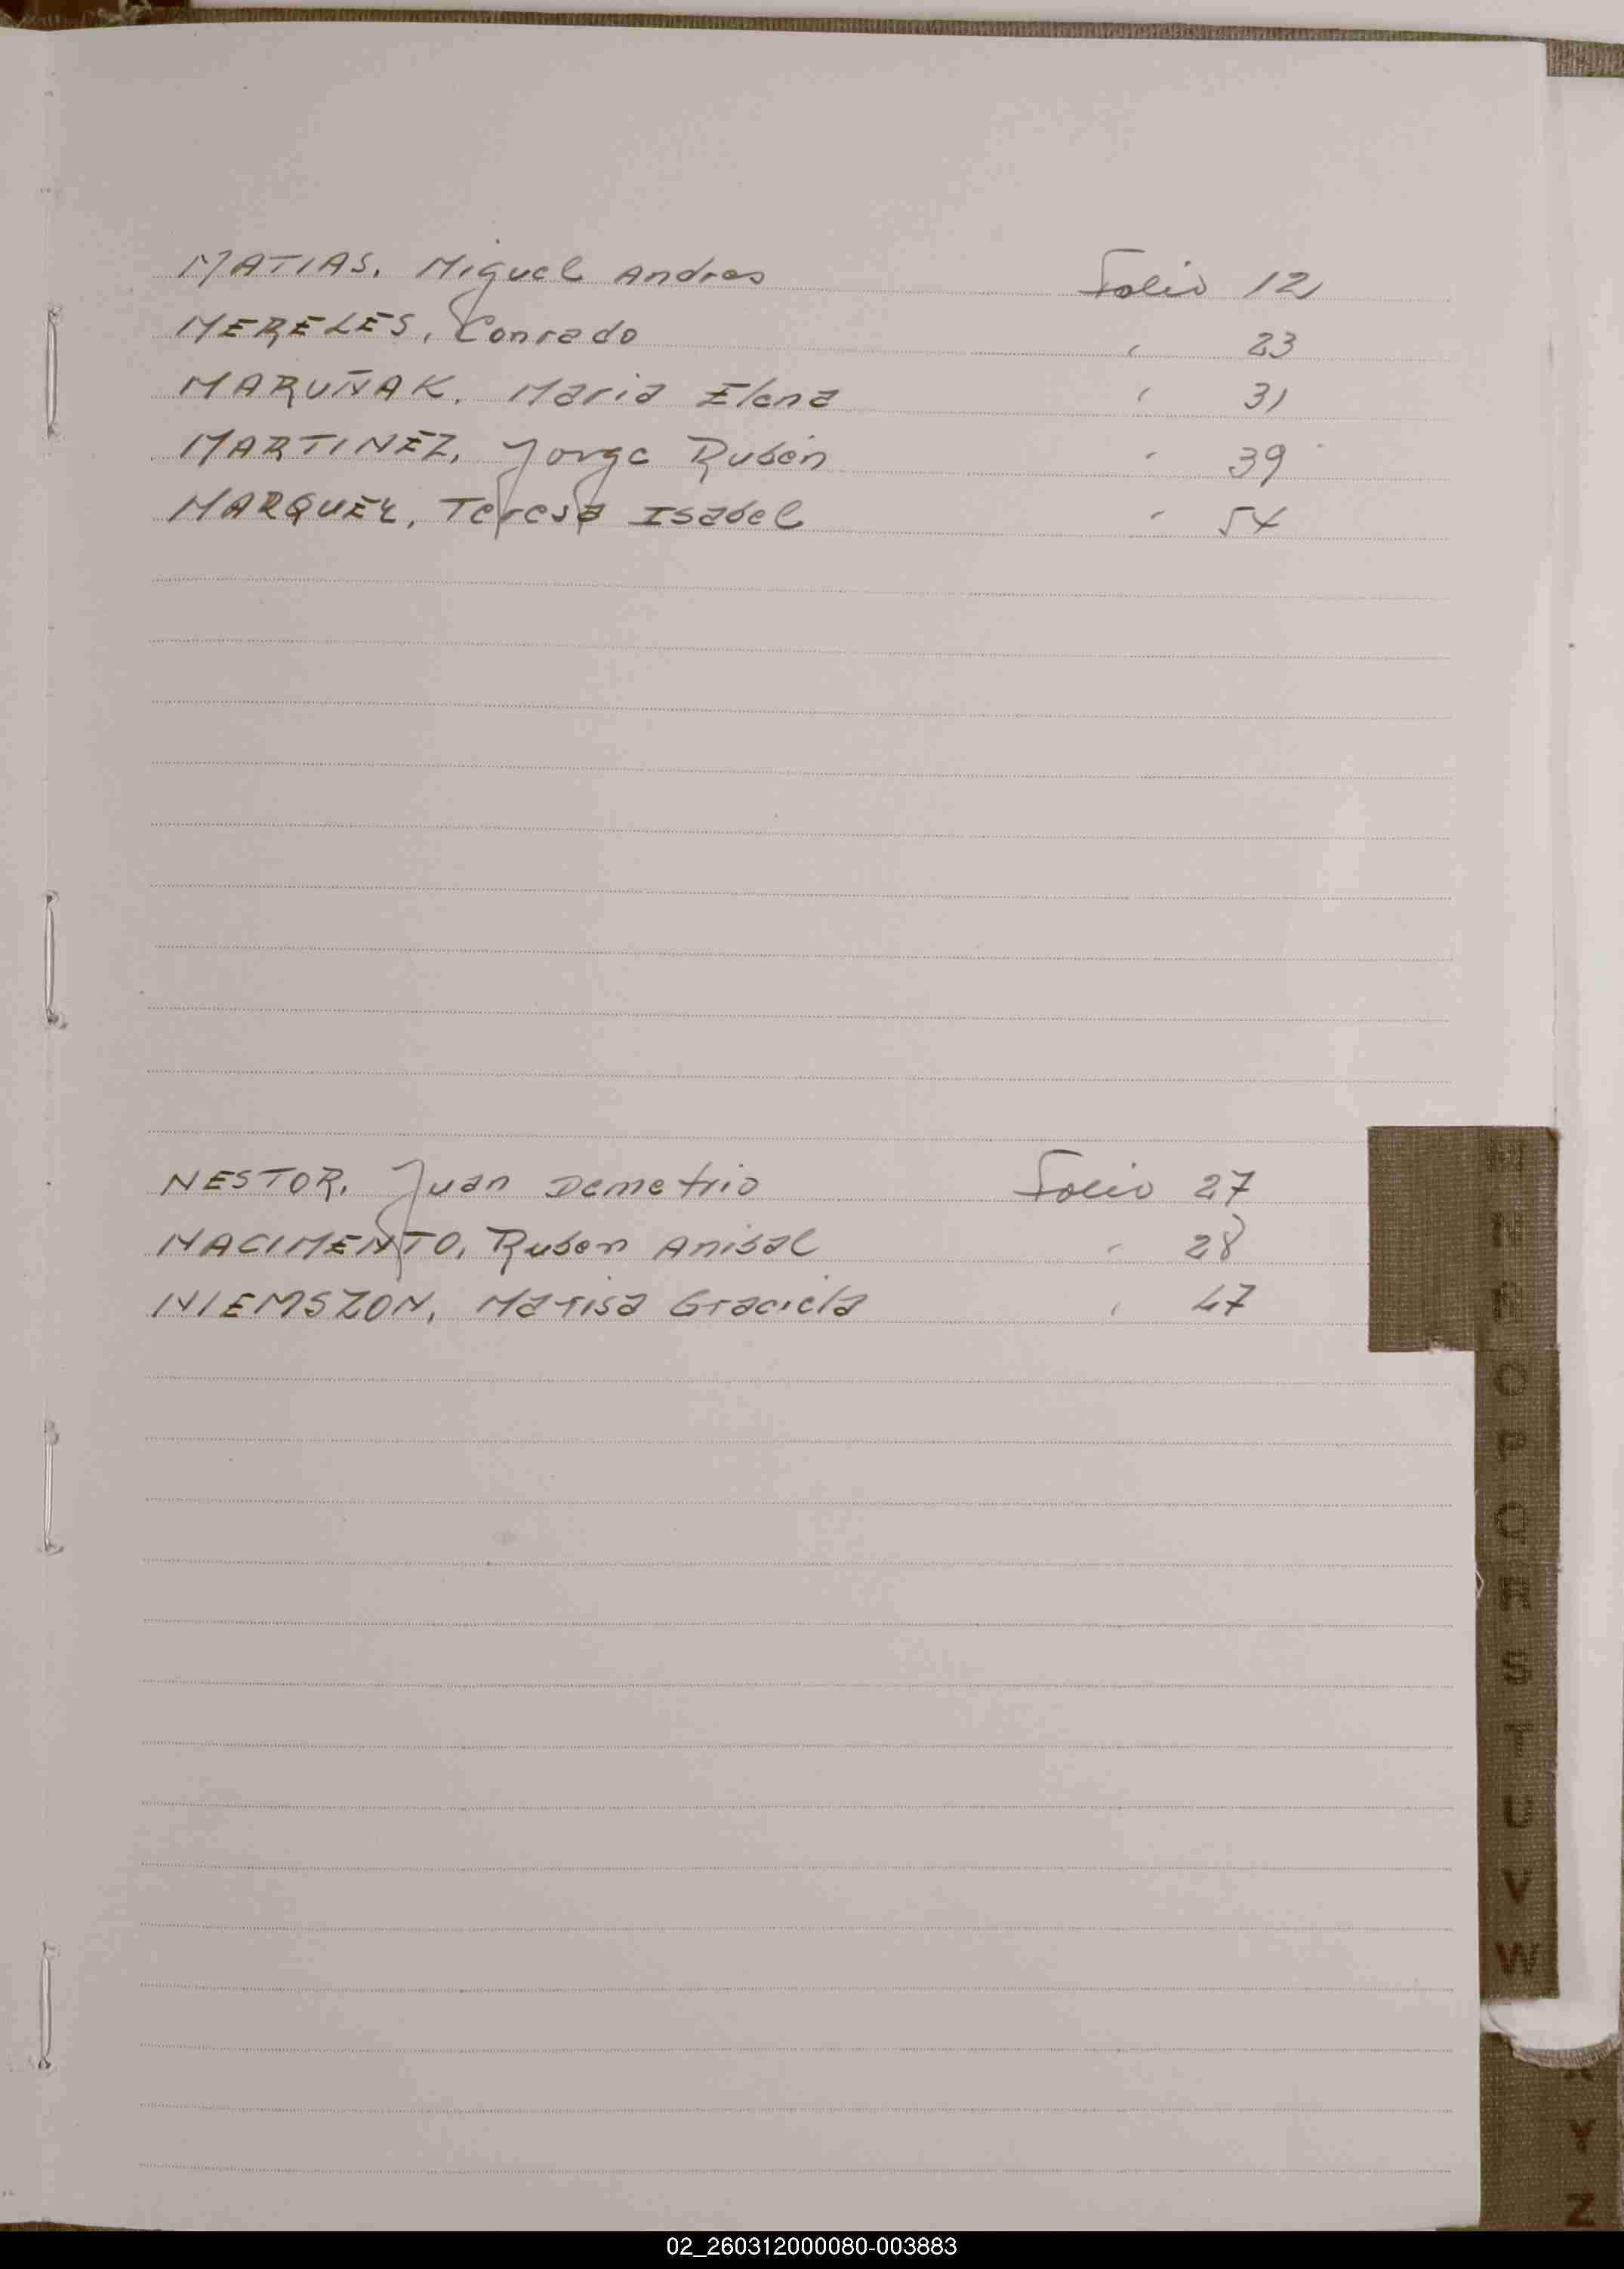 MATIAS, Miguel Andres Folio 12
MERELES, Conrado " 23
MARUÑAK, Maria Elena " 31
MARTINEZ, Jorge Rubén " 39
MARQUEZ, Teresa Isabel " 54
NESTOR, Juan Demetrio Folio 27
NACIMENTO, Ruben Anibal " 28
NIEMSZON, Marisa Graciela " 47
M
N
Ñ
O
P
Q
R
S
T
U
V
W
X
Y
Z
02_260312000080-003883